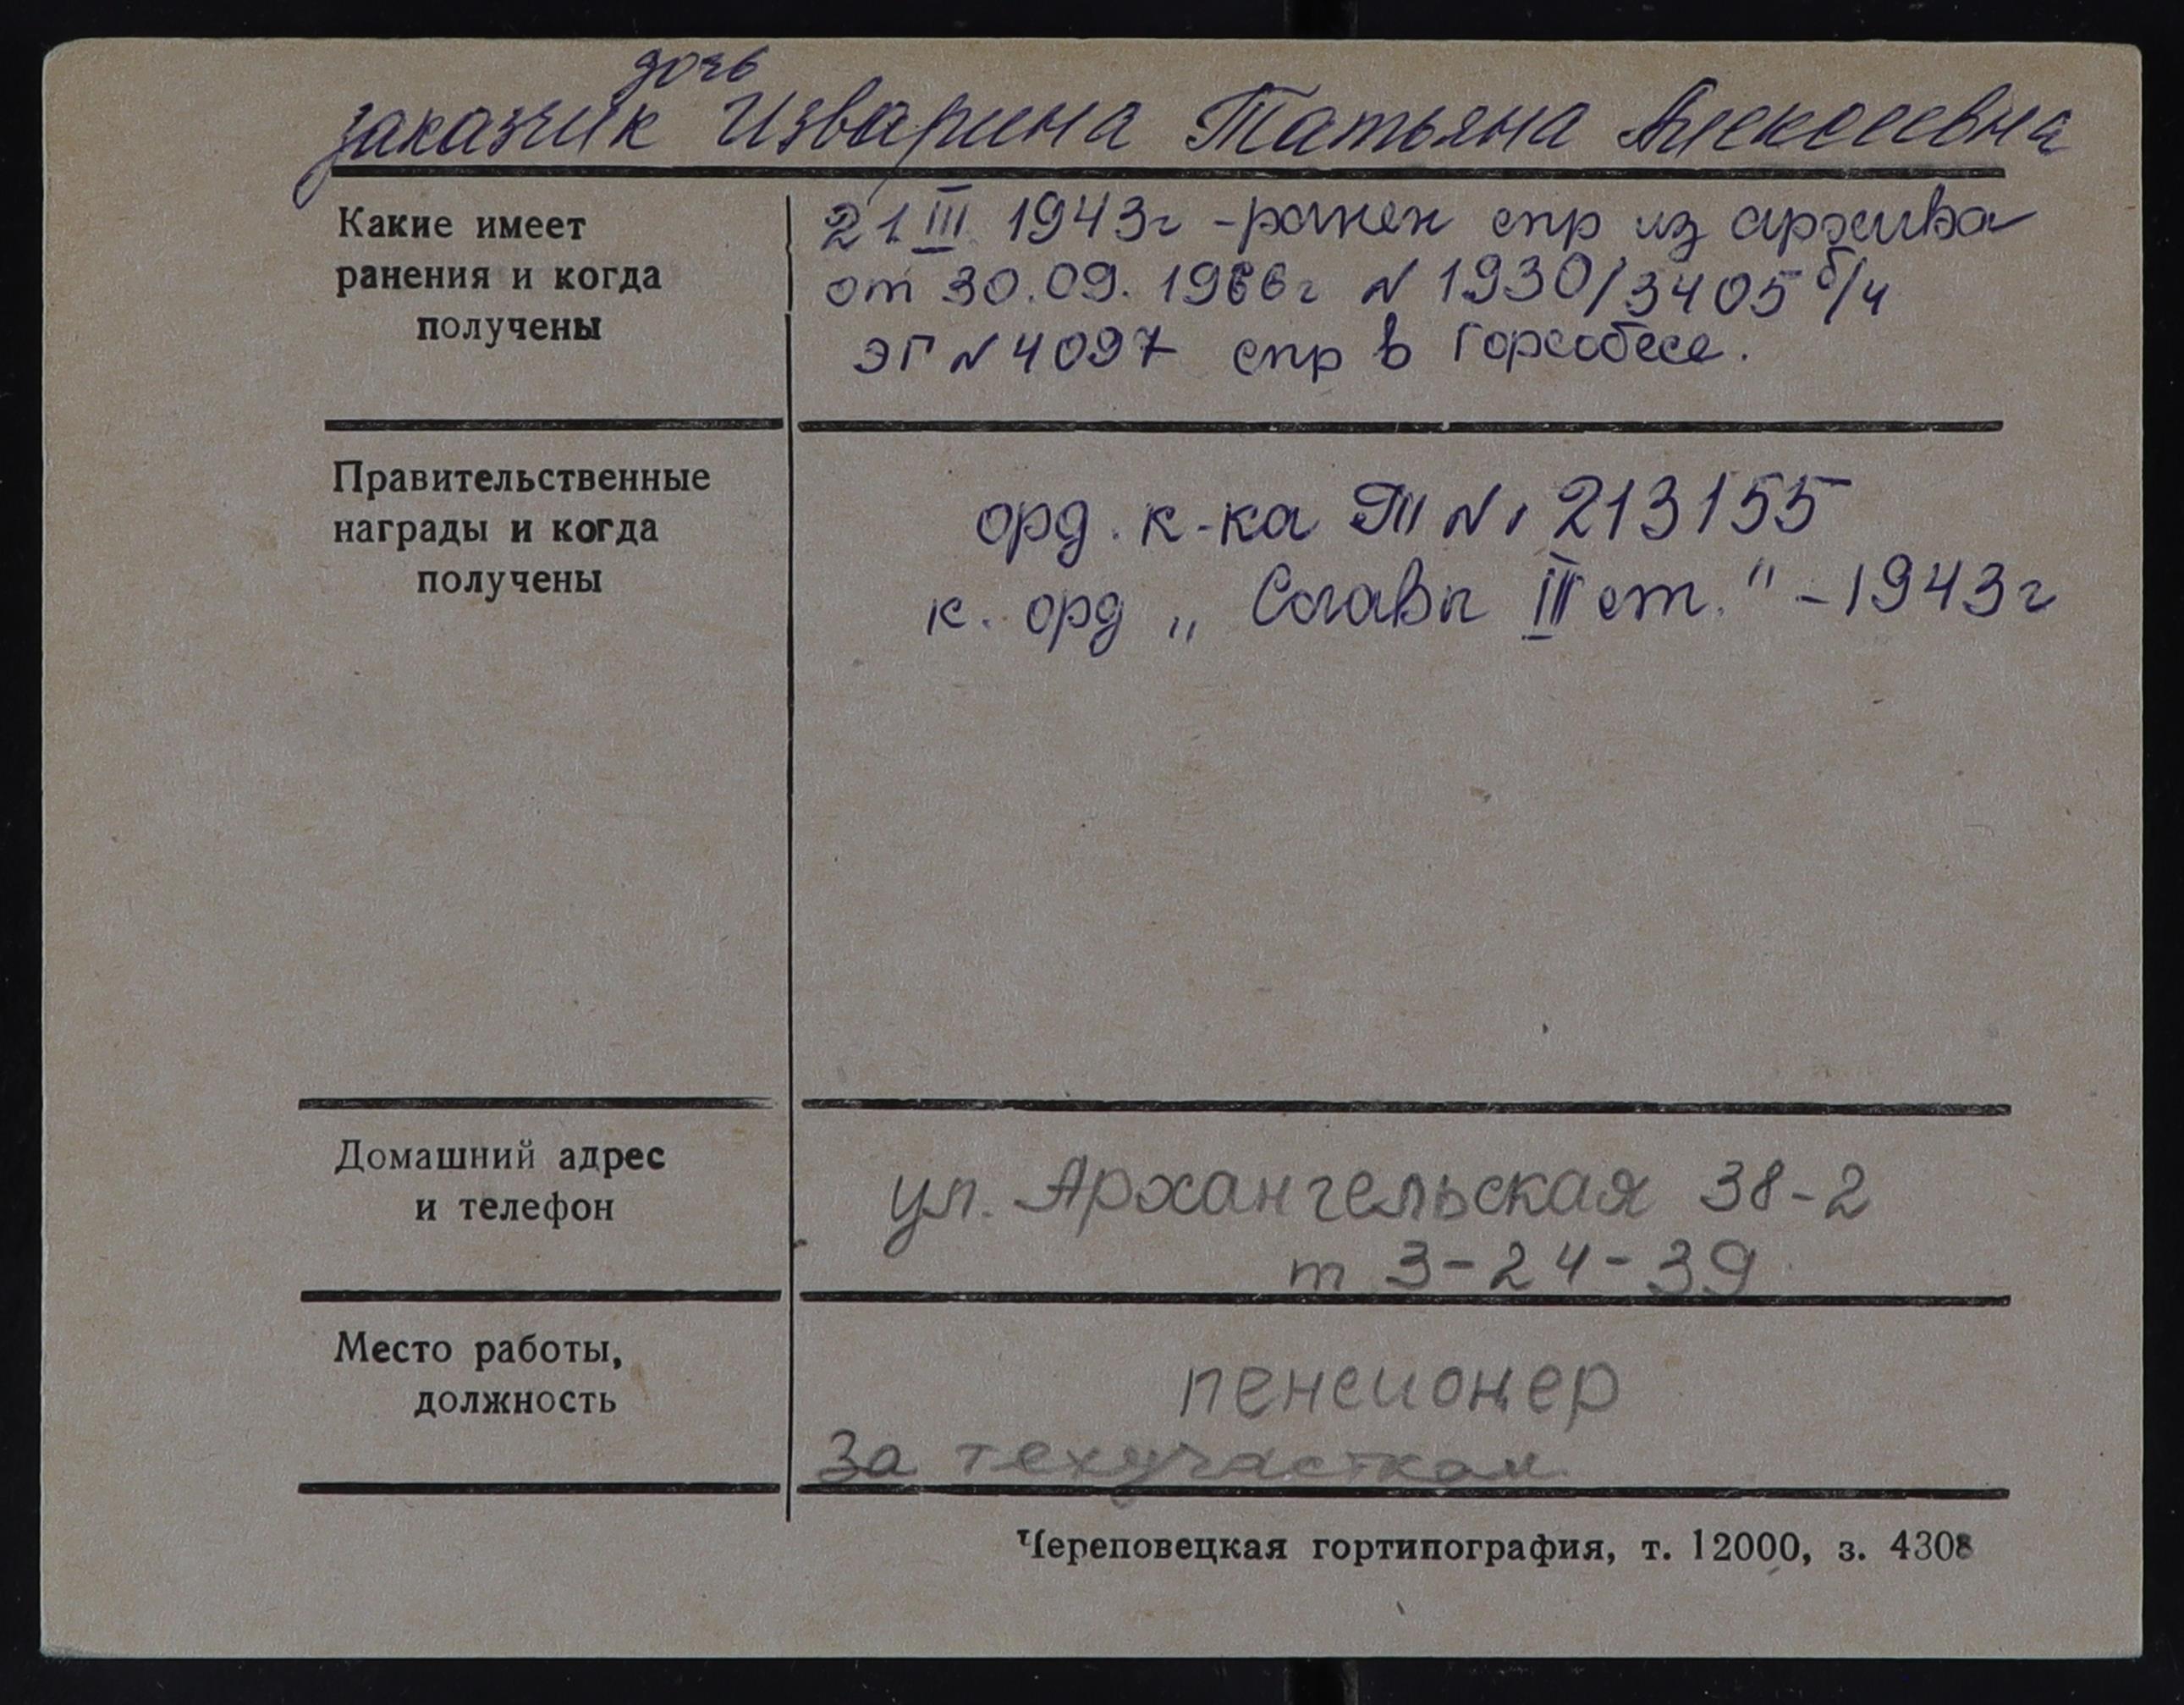 дочь
заказчик Изварина Татьяна Алексеевна
Какие имеет
ранения и когда
получены
21 III 1943г - ранен спр из архива
от 30.09. 1966г N 1930/3405 б/ч
ЭГ N 4097 спр в Горсобесе.
Правительственные
награды и когда
получены
орд. к-ка N 213155
к. орд „Славы III ст." - 1943г
Домашний адрес
и телефон
ул. Архангельская 38-2
т 3-24-39
Место работы,
должность
пенсионер
За техучастком
Череповецкая гортипография, т. 12000, з. 4308